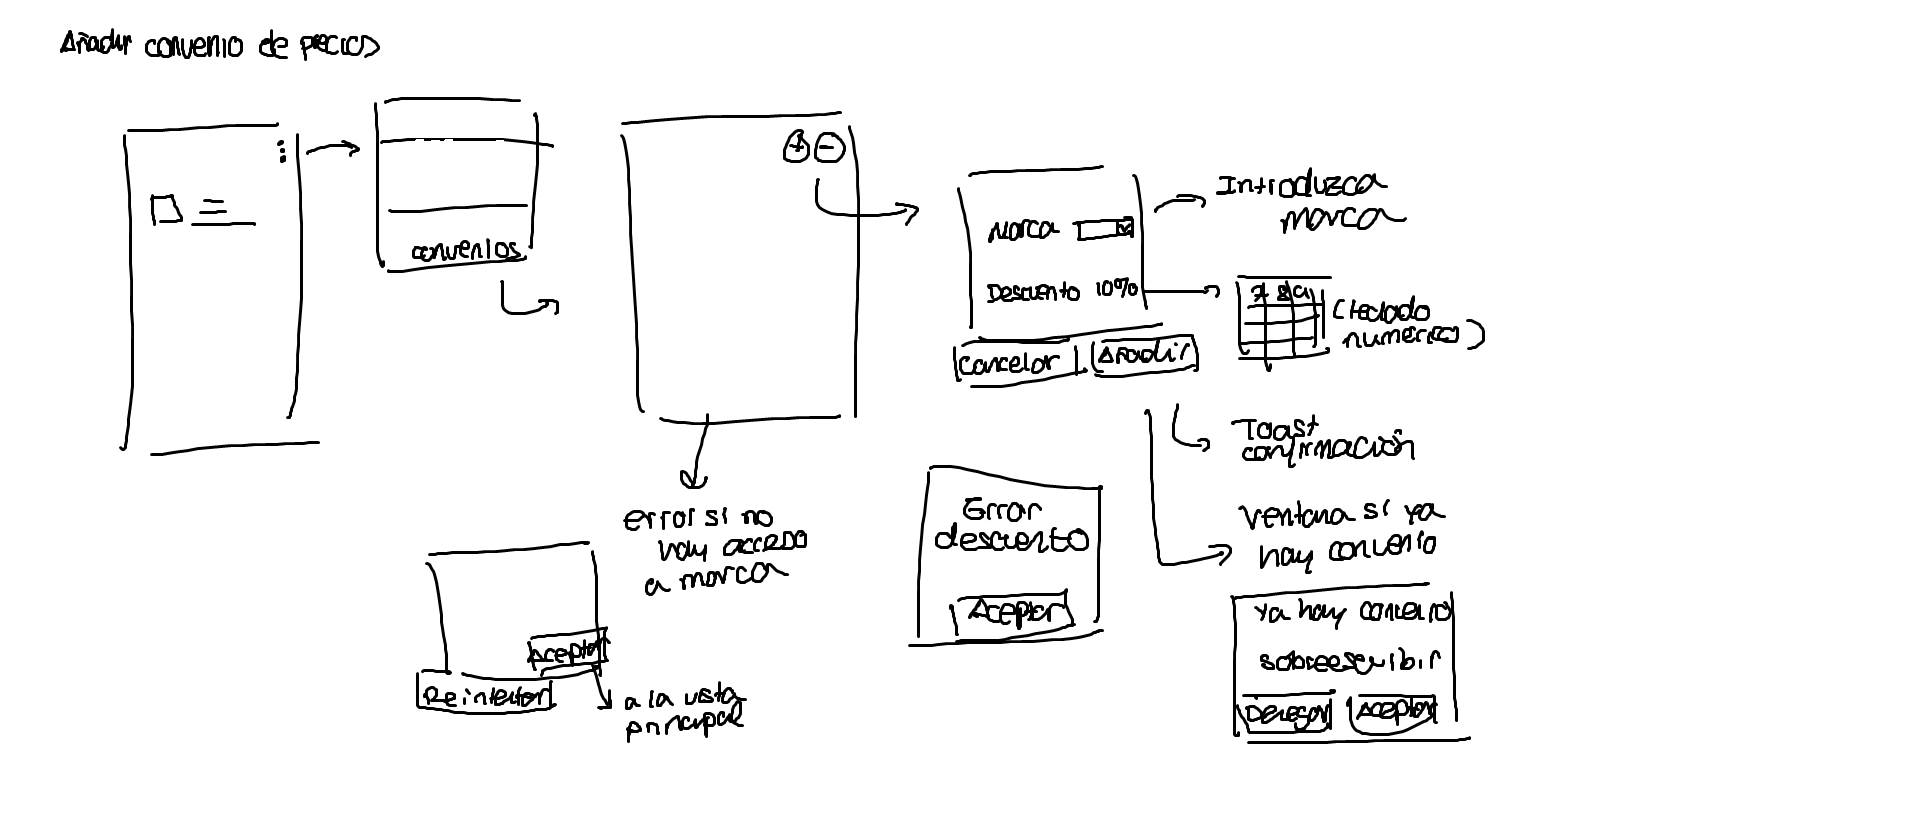 Añadir convenio de precios
convenios
+ -
Marca
Descuento 10%
Cancelar
Añadir
Introduzca
marca
7 8 9
(teclado
numerico)
Toast
confirmación
ventana si ya
hay convenio
Ya hay convenio
sobreescribir
Denegar
Aceptar
error si no
hay acceso
a marca
Error
descuento
Aceptar
Aceptar
Reintentar
a la vista
principal